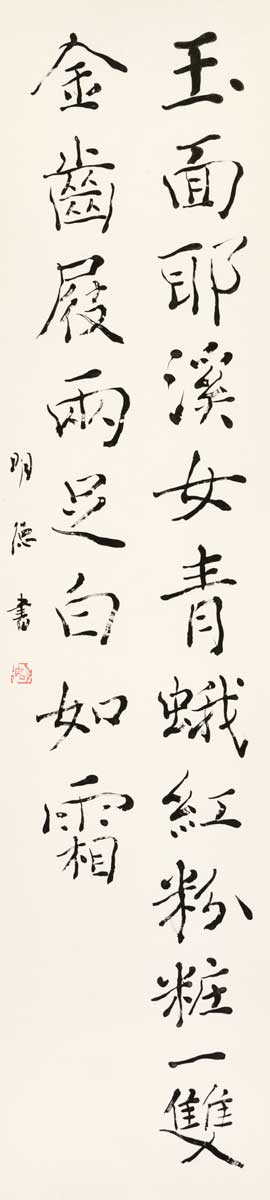 玉面耶溪女青蛾紅粉粧一雙
金齒屐兩足白如霜
明德書